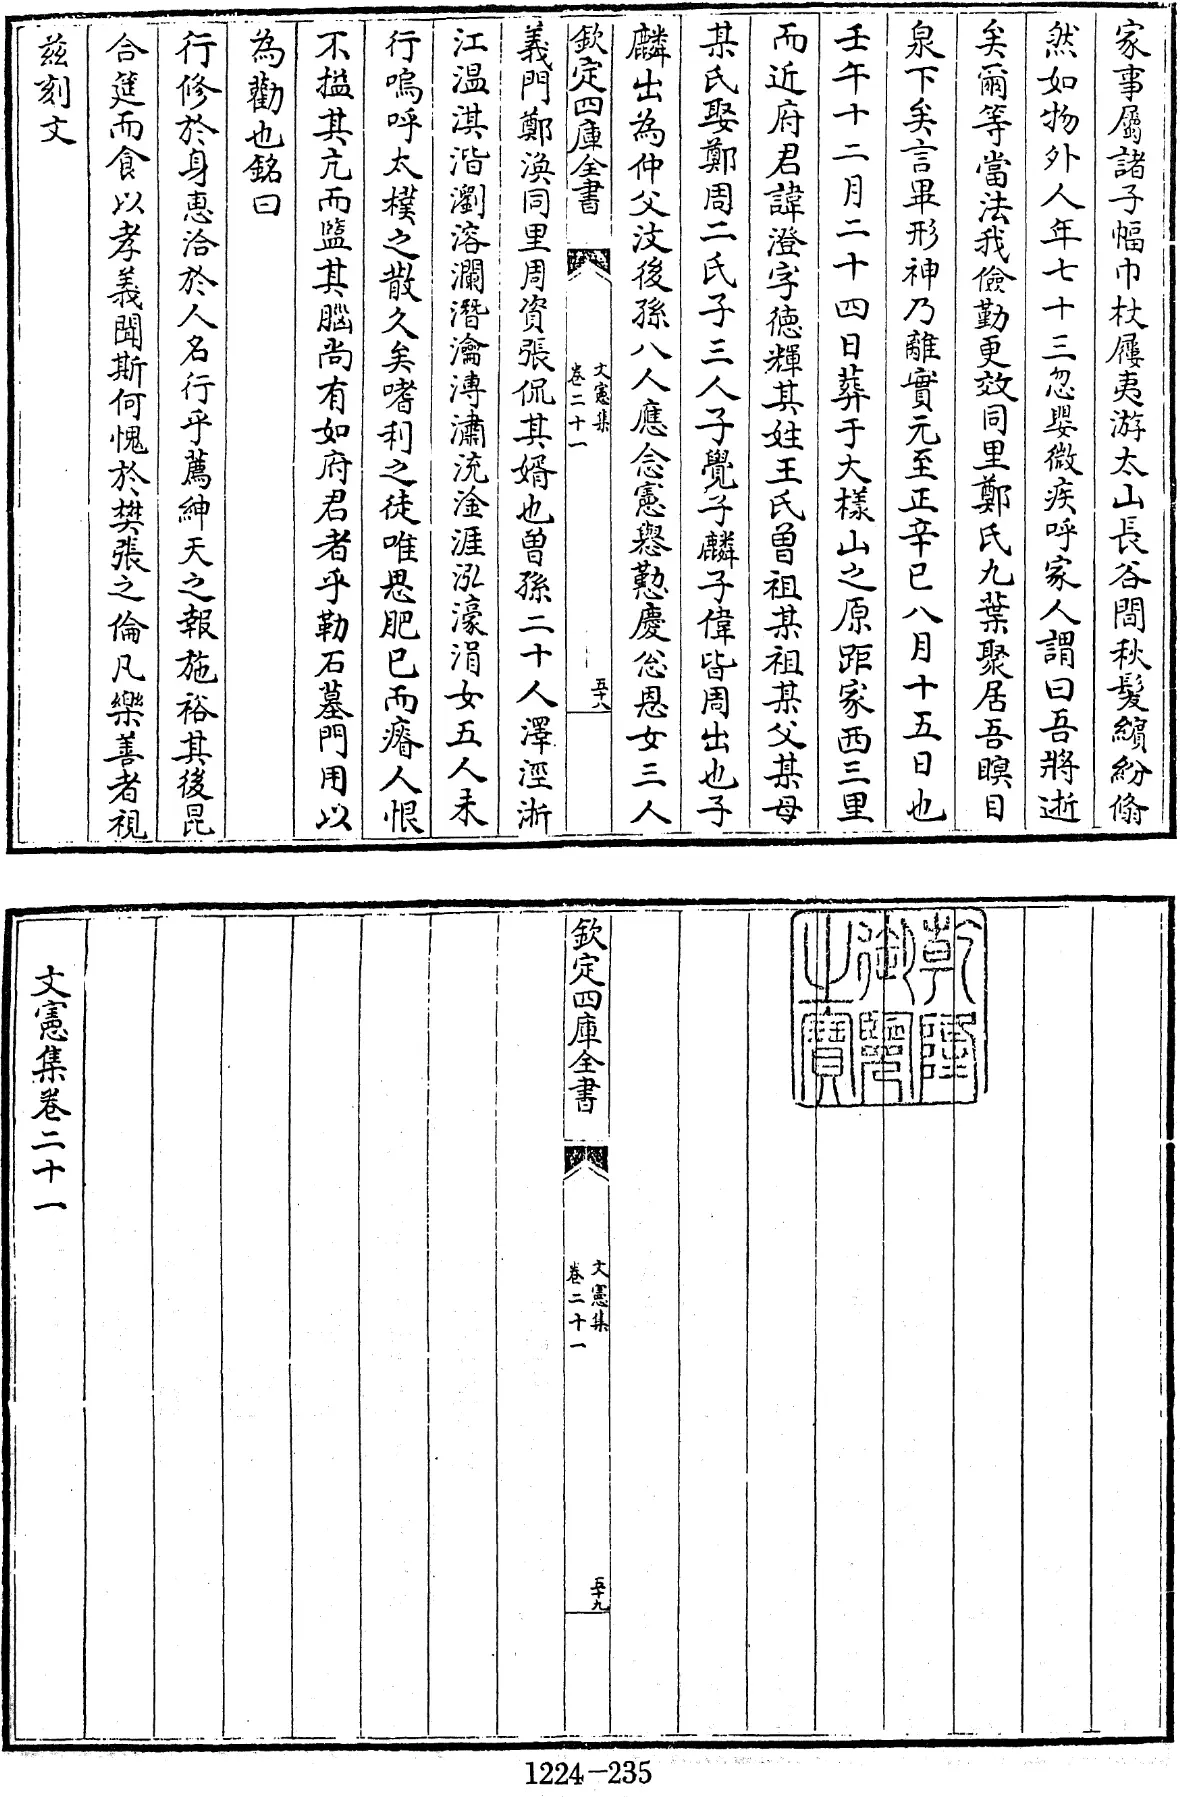 家事屬諸子幅巾杖屨夷游太山長谷間秋髮繽紛翛
然如物外人年七十三忽嬰微疾呼家人謂曰吾將逝
矣爾等當法我儉勤更效同里鄭氏九葉聚居吾瞑目
泉下矣言畢形神乃離實元至正辛巳八月十五日也
壬午十二月二十四日葬于大樣山之原距家西三里
而近府君諱澄字德輝其姓王氏曾祖某祖某父某母
某氏娶鄭周二氏子三人子覺子麟子偉皆周出也子
麟出為仲父汶後孫八人應念憲懃懃慶忩恩女三人
欽定四庫全書
文憲集
卷二十一
五十八
義門鄭渙同里周資張侃其婿也曾孫二十人澤涇浙
江温淇湝瀏溶瀾潛瀹溥潚流淦涯泓濠涓女五人未
行嗚呼太樸之散久矣嗜利之徒唯思肥已而瘠人恨
不搤其亢而盬其腦尚有如府君者乎勒石墓門用以
為勸也銘曰
行修於身惠洽於人名行乎薦紳天之報施裕其後昆
合筵而食以孝義聞斯何愧於樊張之倫凡樂善者視
兹刻文
乾隆御覽之寶
欽定四庫全書
文憲集
卷二十一
五十九
文憲集卷二十一
1224-235